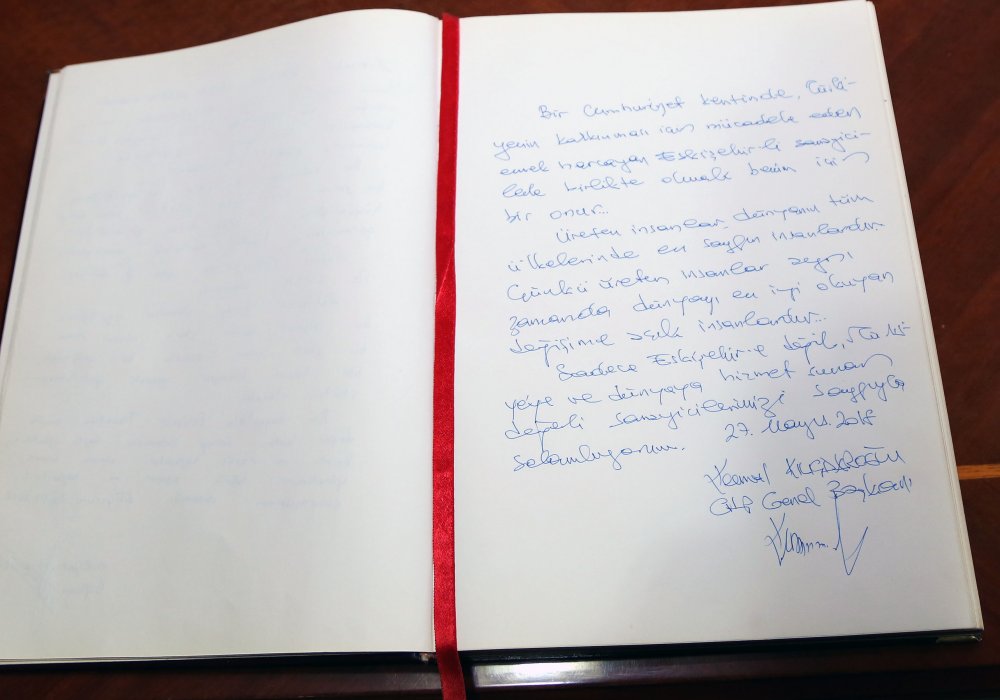 Bir Cumhuriyet kentinde, Türki-
yenin kalkınması için mücadele eden
emek harcayan Eskişehir-li sanayici-
lerle birlikte olmak benim için
bir onur...
Üreten insanlar, dünyanın tüm
ülkelerinde en saygın insanlardır.
Çünkü üreten insanlar aynı
zamanda dünyayı en iyi okuyan
değişime açık insanlardır...
Sadece Eskişehir-e değil, Türki-
yeye ve dünyaya hizmet sunan
değerli sanayicilerimizi saygıyla
selamlıyorum. 27. Mayıs. 2015
Kemal KILIÇDAROĞLU
CHP Genel Başkanı